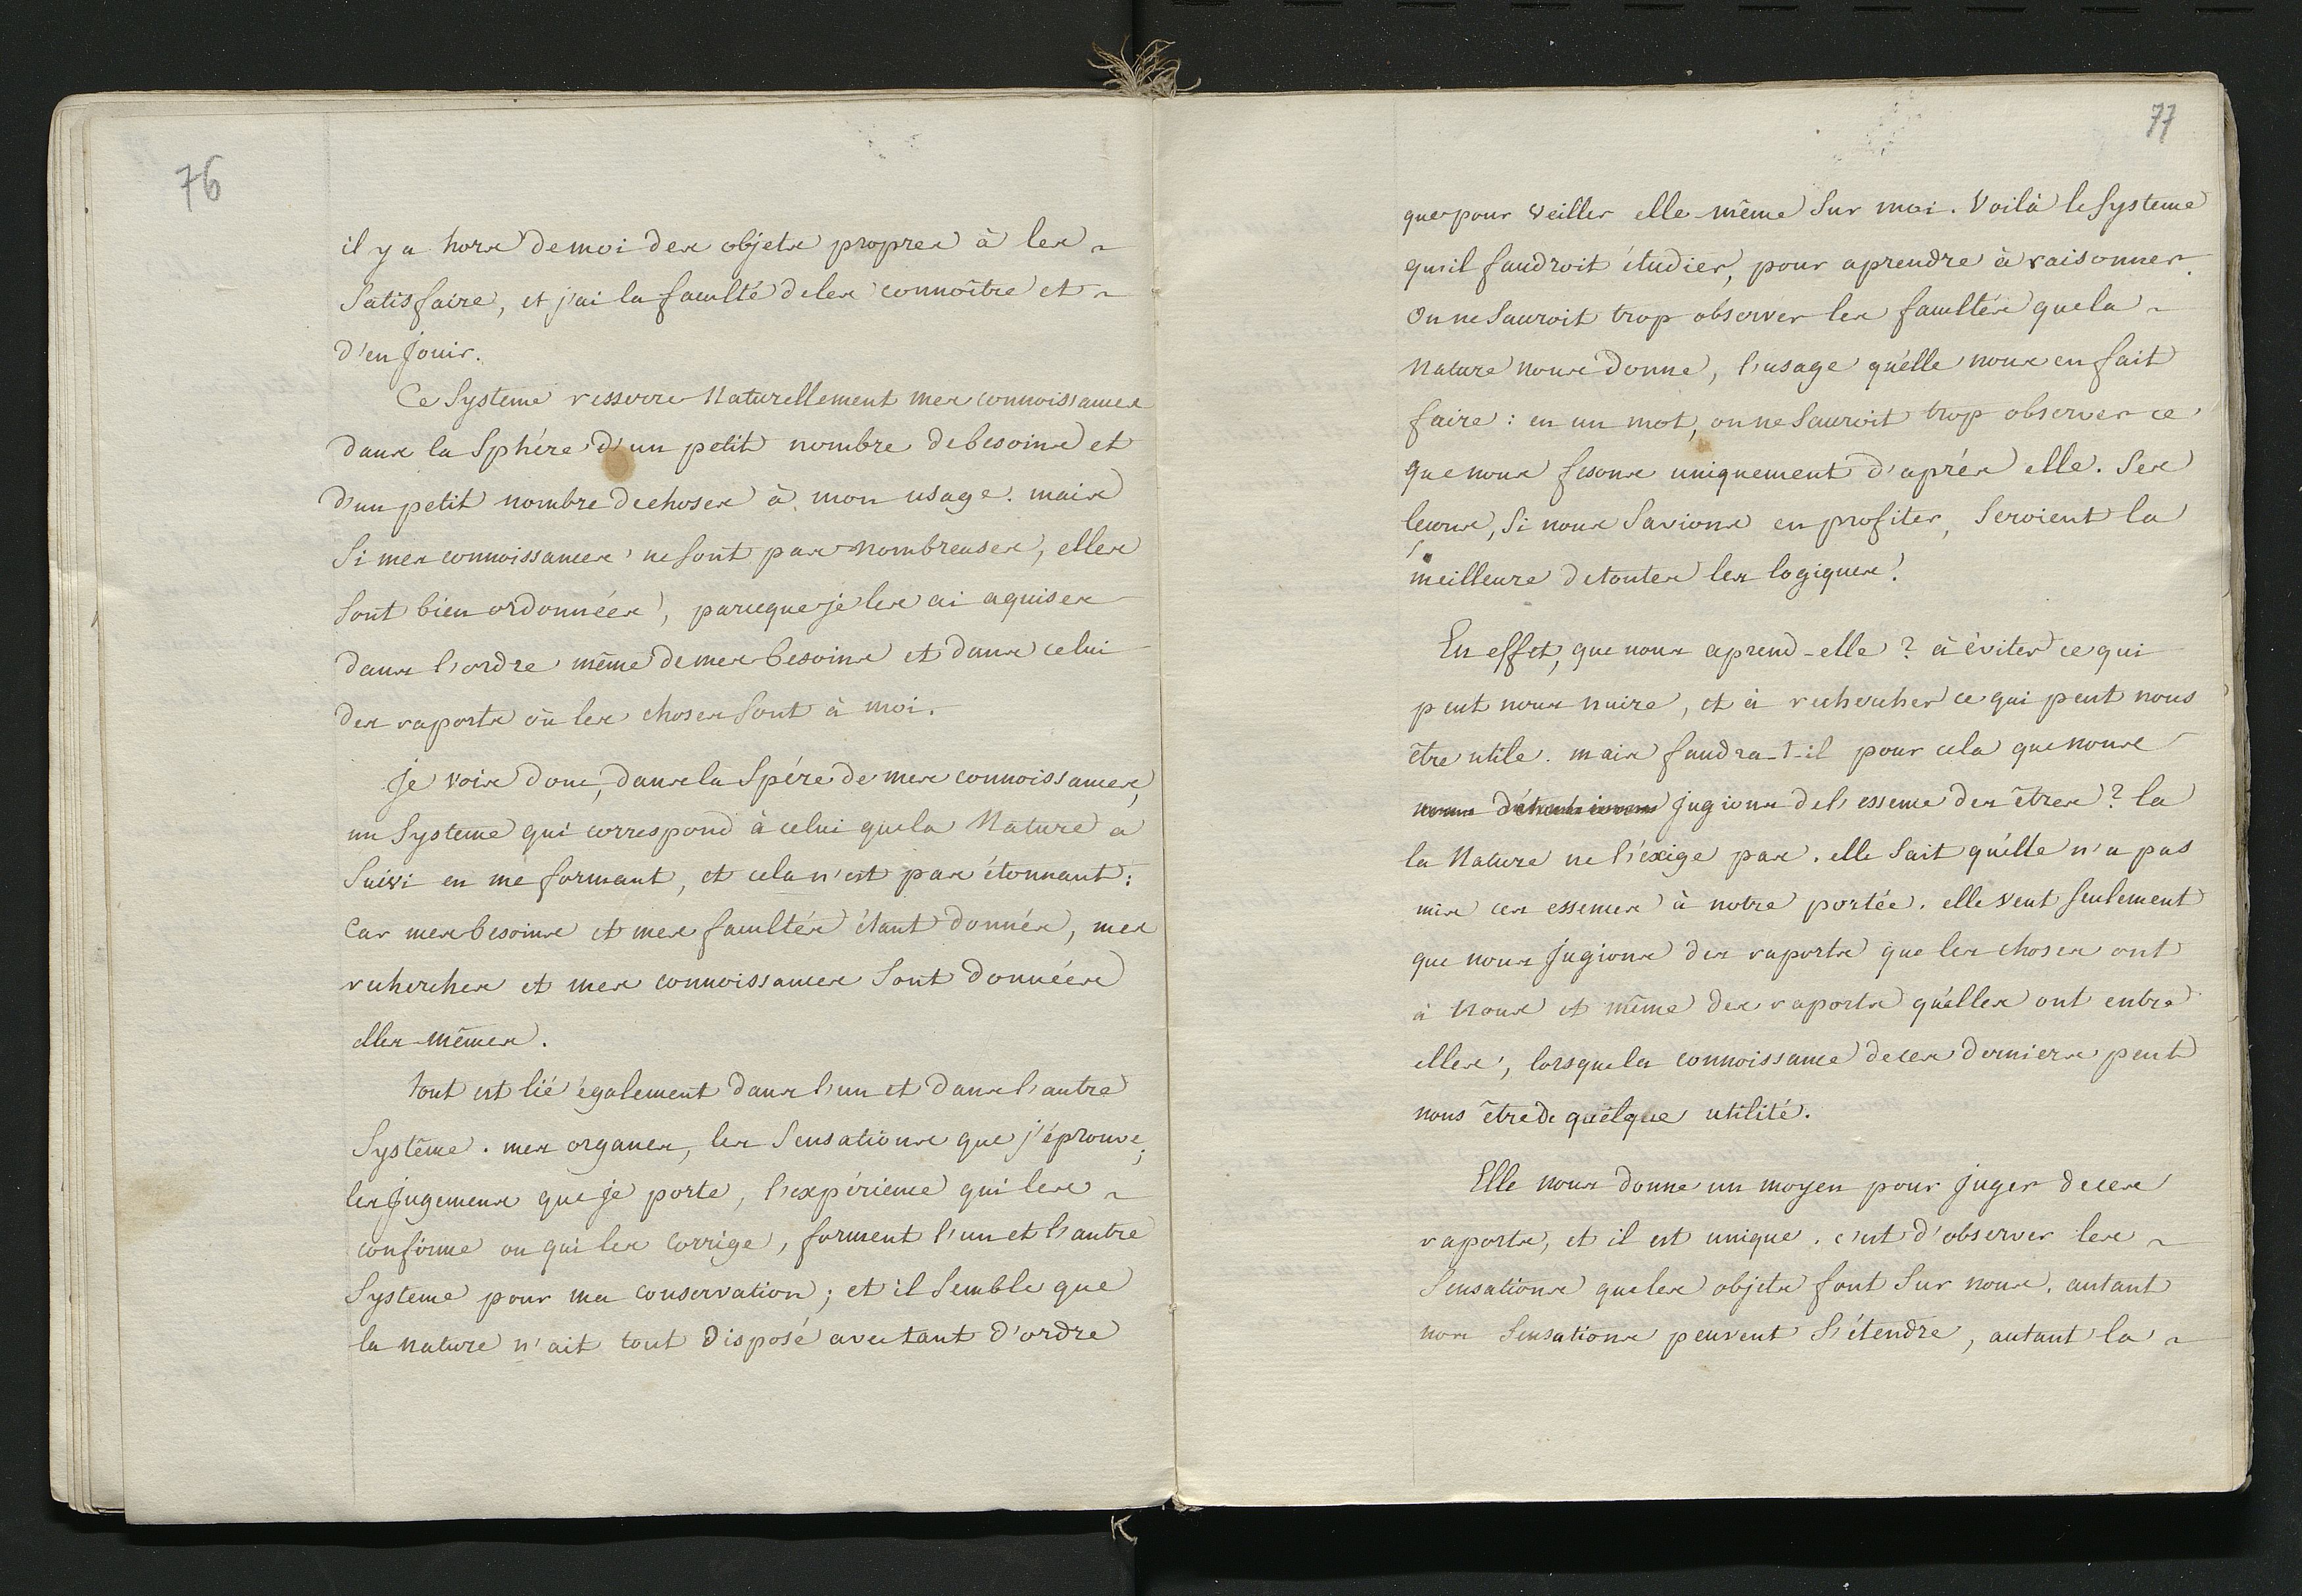 76
il y a hors de moi des objets propres à les
Satisfaire, et j'ai la faculté de les connoître et
d'en Jouir.
Ce Systeme resserre Naturellement mes connoissances
dans la Sphére d'un petit nombre de besoins et
d'un petit nombre de choses à mon usage. mais
Si mes connoissances ne sont pas nombreuses, elles
Sont bien ordonnées, parceque je les ai aquises
dans l'ordre même de mes besoins et dans celui
des raports où les choses sont à moi.
Je vois donc, dans la Spére de mes connoissances,
un Systeme qui correspond à celui que la Nature a
Suivi en me formant, et cela n'est pas étonnant:
Car mes besoins et mes facultés étant donnés, mes
recherches et mes connoissances Sont données
elles-mêmes.
tout est lié également dans l'un et dans l'autre
Systême. mes organes, les Sensations que j'éprouve,
les Jugemens que je porte, l'expérience qui les
confirme ou qui les Corrige, forment l'un et l'autre
Systeme pour ma Conservation; et il Semble que
la nature n'ait tout disposé avec tant d'ordre
77
que pour veiller elle-même Sur moi. Voilà le Systeme
qu'il faudroit étudier, pour aprendre à raisonner.
On ne Sauroit trop observer les facultés que la
Nature nous donne, l'usage qu'elle nous en fait
faire: en un mot, on ne Sauroit trop observer ce
que nous fesons uniquement d'après elle. Ses
leçons, Si nous Savions en profiter, Seroient la
meilleure de toutes les logiques!
En effet, que nous aprend-elle? à éviter ce qui
peut nous nuire, et à rechercher ce qui peut nous
être utile. mais faudra-t-il pour cela que nous
Jugions de l'essence des êtres? la
la Nature ne l'éxige pas. elle Sait qu'elle n'a pas
mis ces essences à notre portée. elle veut Seulement
que nous Jugions des raports que les choses ont
à Nous et même des raports qu'elles ont entre
elles, lorsque la connoissance de ces derniers peut
nous être de quelque utilité.
Elle nous donne un moyen pour Juger de ces
raports, et il est unique. c'est d'observer les
Sensations que les objets font Sur nous. autant
nos Sensations peuvent S'étendre, autant la